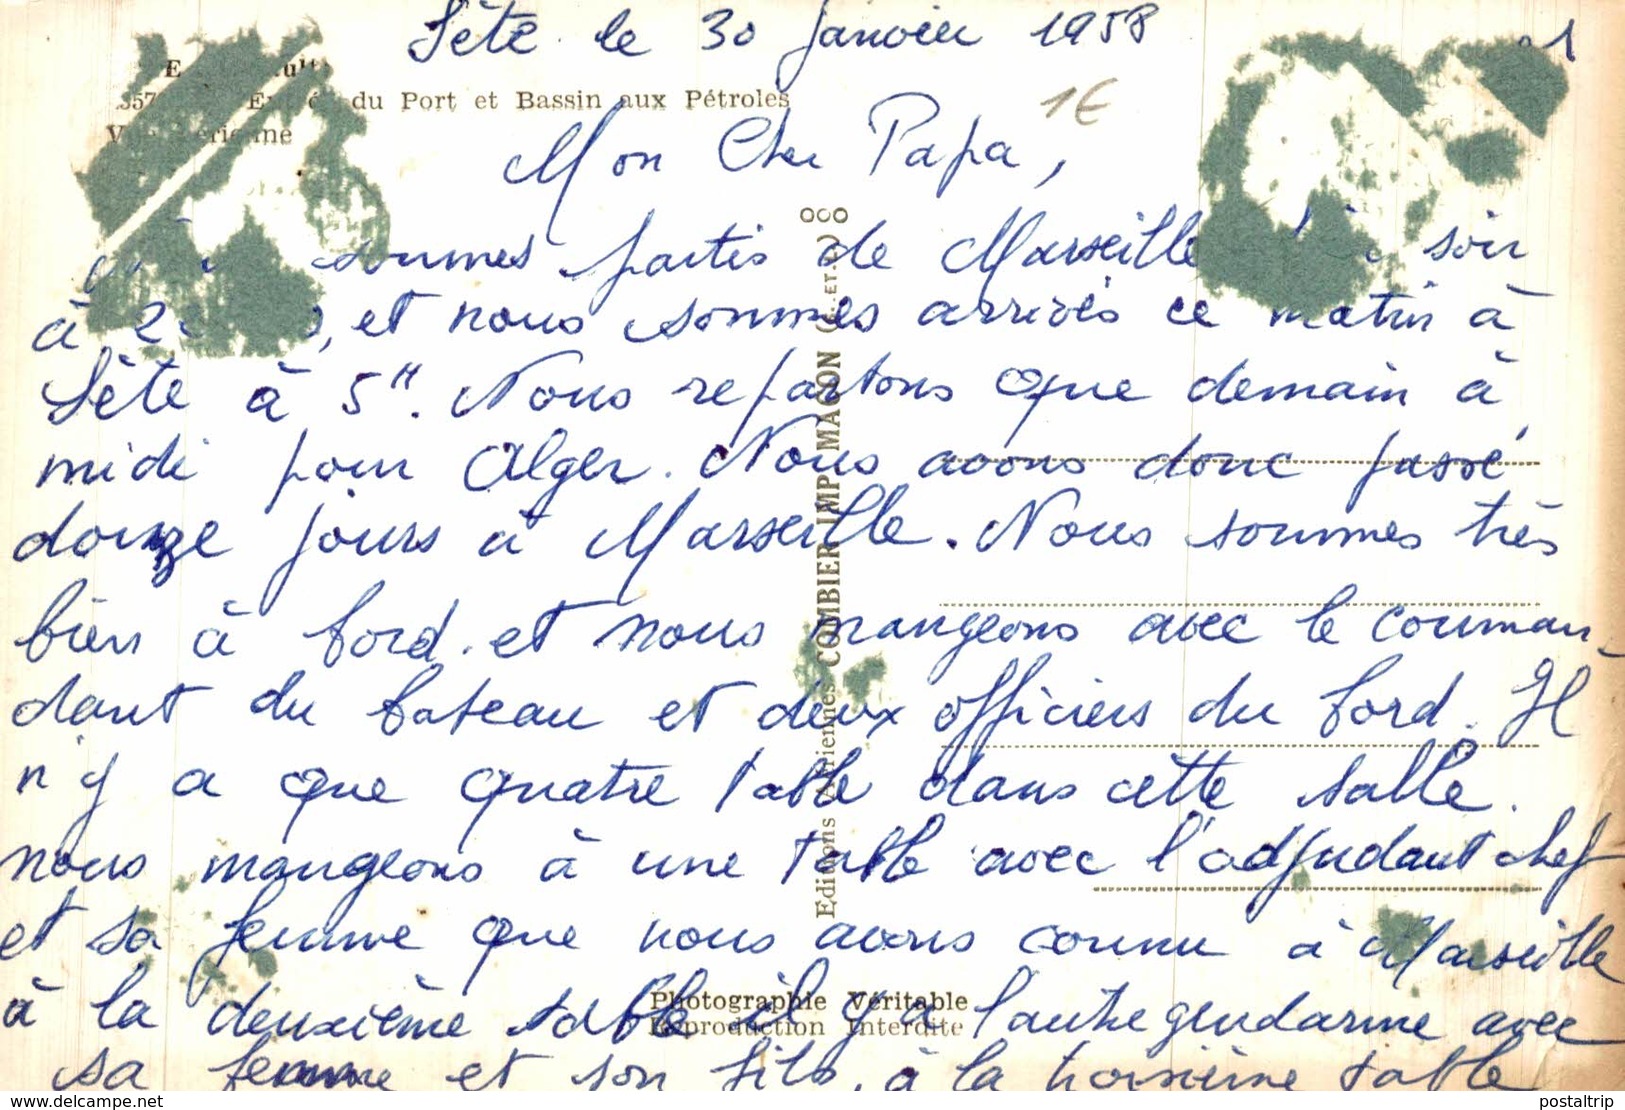 Sète le 30 Janvier 1958
1
1€
du Port et Bassin aux Pétroles
Mon Cher Papa,
sommes partis de Marseille soir
à et nous sommes arrivés ce matin à
Sète à 5H. Nous repartons que demain à
midi pour Alger. Nous avons donc passé
douze jours à Marseille. Nous sommes très
bien à bord. et nous mangeons avec le comman
dant du bateau et deux officiers du bord. Il
n'y a que quatre table dans cette salle.
nous mangeons à une table avec l'adjudant chef
et sa femme que nous avons connu à Marseille
à la deuxième table il y a l'autre gendarme avec
sa femme et son fils, à la troisième table
Editions Aériennes COMBIER IMP MACON
Photographie Véritable
Reproduction Interdite
www.delcampe.net
postaltrip